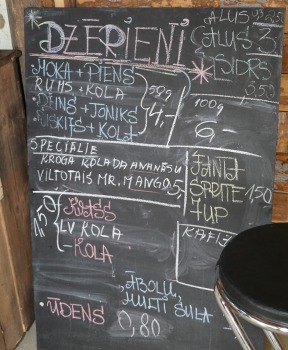 DZĒRIENI
ALUS
ALUS 3,
SIDRS
5,5%
MOKA + PIENS
RUMS + KOLA
DŽINS + TONIKS
VISKIJS + KOLA
50g
4,-
100g
6,-
SPECIĀLIE
KROGA KOLADA ANANĒSU
VILTOTAIS MR. MANGO 5,-
FANTA
SPRITE
7UP
1,50
1,50
KVASS
LV KOLA
- KOLA
KAFIJ
ĀBOLU,
MULTI SULA
ŪDENS 0,80